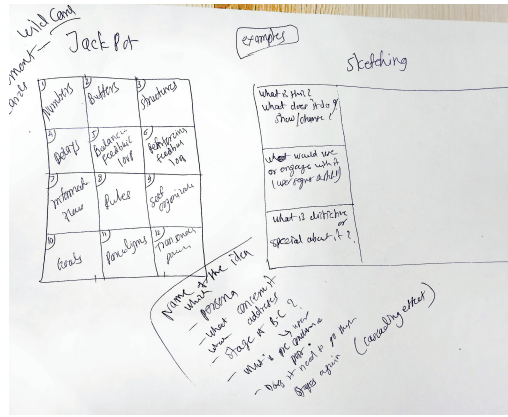 Wild Card
Jackpot
examples
Sketching
1 Numbers
2 Buffers
3 Structures
4 Delays
5 Balancing feedback loop
6 Reinforcing feedback loop
7 Information flow
8 Rules
9 Self organization
10 Goals
11 Paradigms
12
What is this?
What does it do &
show/change?
would use
or engage with it
What is distinctive
or
special about it?
Name of the idea
which
- persona
- what
address
- Stage of B-C?
- What's
- Does it need to go
stages again (cascading effect)